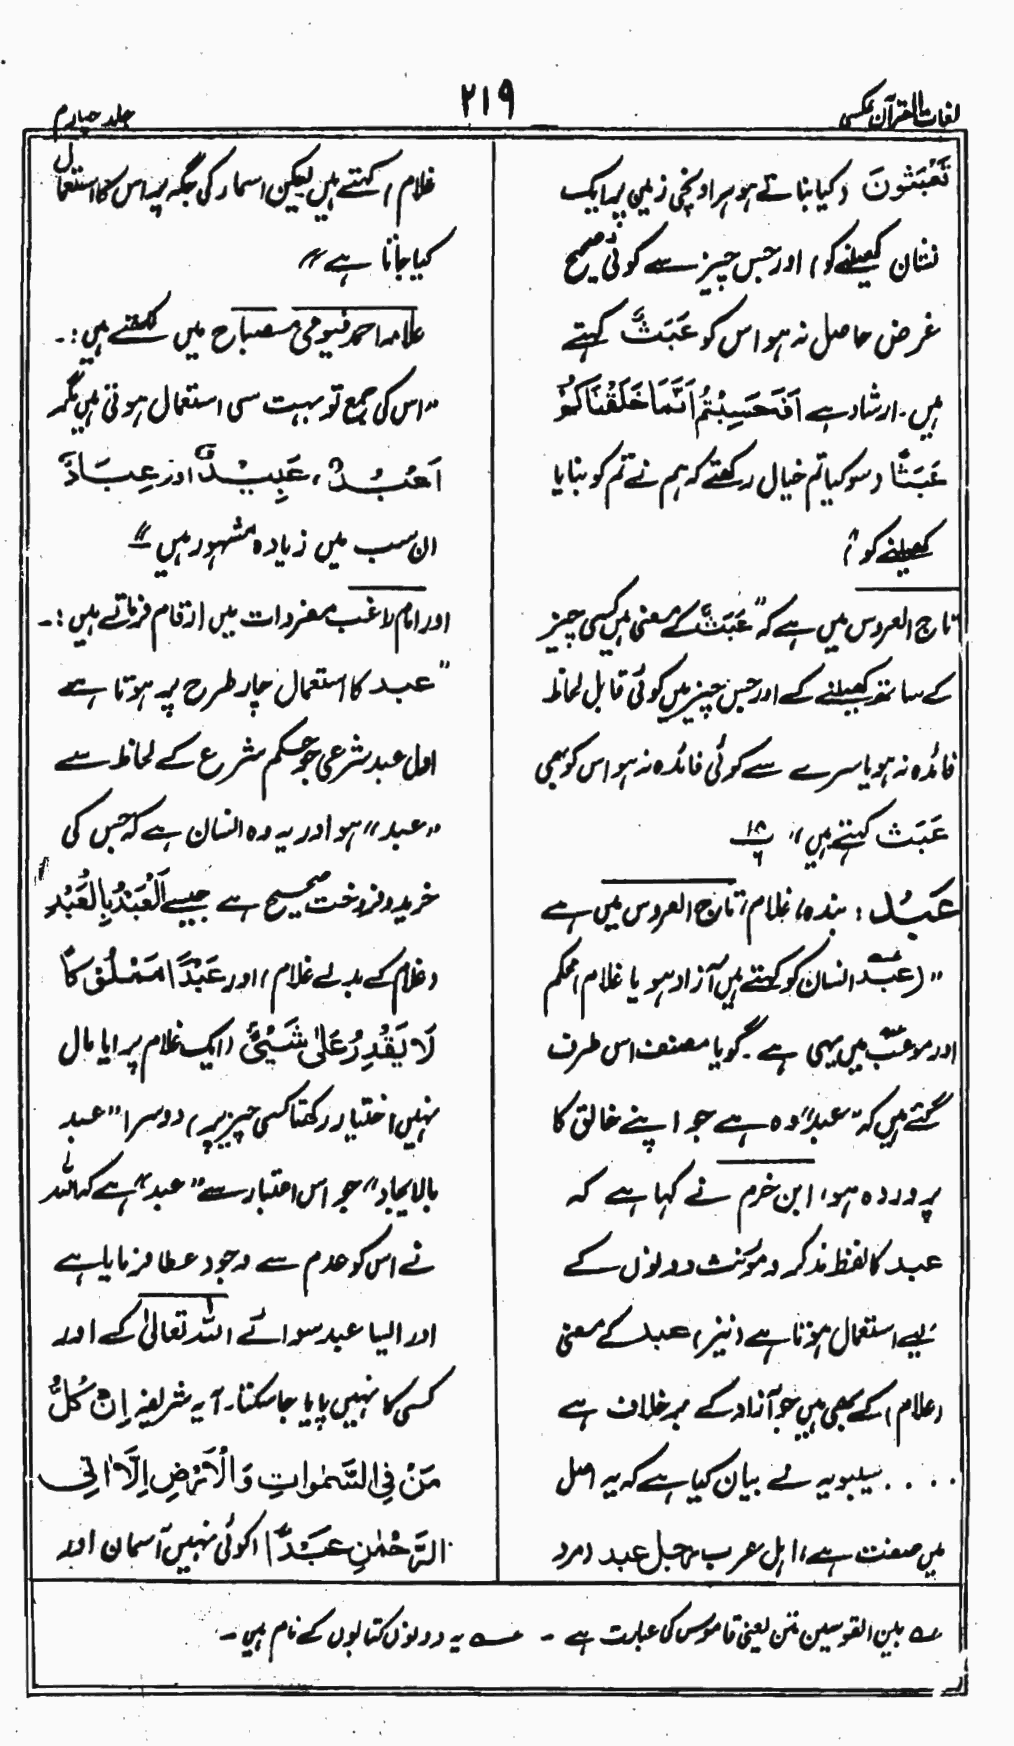 لغات القرآن عکسی
۲۱۹
جلد چہارم
تَعْبَثُونَ (کیا بناتے ہو ہر اونچی زمین پر ایک
نشان کھیلنے کو) اور جس چیز سے کوئی صحیح
غرض حاصل نہ ہو اس کو عَبَثٌ کہتے
ہیں۔ ارشاد ہے اَفَحَسِبْتُمْ اَنَّمَا خَلَقْنَاکُمْ
عَبَثًا (سو کیا تم خیال رکھتے کہ ہم نے تم کو بنایا
کھیلنے کو)
تاج العروس میں ہے کہ "عَبَثٌ کے معنی ہیں کسی چیز
کے ساتھ کھیلنے کے اور جس چیز میں کوئی قابل لحاظ
فائدہ نہ ہو یا سرے سے کوئی فائدہ نہ ہو اس کو بھی
عَبَث کہتے ہیں" ۱۸/۶
عَبْدٌ: بندہ، غلام، تاج العروس میں ہے
"(عبد انسان کو کہتے ہیں آزاد ہو یا غلام) محکم
اور موعب میں یہی ہے۔ گویا مصنف اس طرف
گئے ہیں کہ "عبد" وہ ہے جو اپنے خالق کا
پروردہ ہو، ابن حزم نے کہا ہے کہ
عبد کا لفظ مذکر و مؤنث دونوں کے
لیے استعمال ہوتا ہے (نیز) عبد کے معنی
(غلام) کے بھی ہیں جو آزاد کے برخلاف ہے
.... سیبویہ نے بیان کیا ہے کہ یہ اصل
میں صفت ہے، اہل عرب رجل عبد (مرد
غلام) کہتے ہیں لیکن اسماء کی جگہ پر اس کا استعمال
کیا جاتا ہے"
علامہ احمد فیومی مصباح میں لکھتے ہیں:۔
"اس کی جمع تو بہت سی استعمال ہوتی ہیں مگر
اَعْبُدٌ، عَبِیْدٌ اور عِبَادٌ
ان سب میں زیادہ مشہور ہیں"
اور امام راغب مفردات میں ارقام فرماتے ہیں:۔
"عبد کا استعمال چار طرح پر ہوتا ہے
اول عبد شرعی جو حکم شرع کے لحاظ سے
"عبد" ہو اور یہ وہ انسان ہے کہ جس کی
خرید و فروخت صحیح ہے جیسے اَلْعَبْدُ بِالْعَبْدِ
(غلام کے بدلے غلام) اور عَبْدًا مَمْلُوْکًا
لَا یَقْدِرُ عَلٰی شَیْئٍ (ایک غلام پرایا مال
نہیں اختیار رکھتا کسی چیز پر) دوسرا "عبد
بالایجاد" جو اس اعتبار سے "عبد" ہے کہ اللہ
نے اس کو عدم سے وجود عطا فرمایا ہے
اور ایسا عبد سوائے اللہ تعالیٰ کے اور
کسی کا نہیں پایا جا سکتا۔ آیہ شریفہ اِنْ کُلُّ
مَنْ فِی السَّمٰوٰاتِ وَالْاَرْضِ اِلَّا اٰتِی
الرَّحْمٰنِ عَبْدًا (کوئی نہیں آسمان اور
؎ بین القوسین متن یعنی قاموس کی عبارت ہے۔ ؎ یہ دونوں کتابوں کے نام ہیں۔